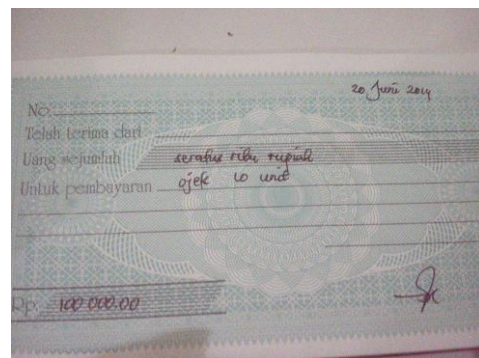 20 Juni 2014
No.
Telah terima dari
Uang sejumlah seratus ribu rupiah
Untuk pembayaran ojek 10 unit
Rp. 100 000.00